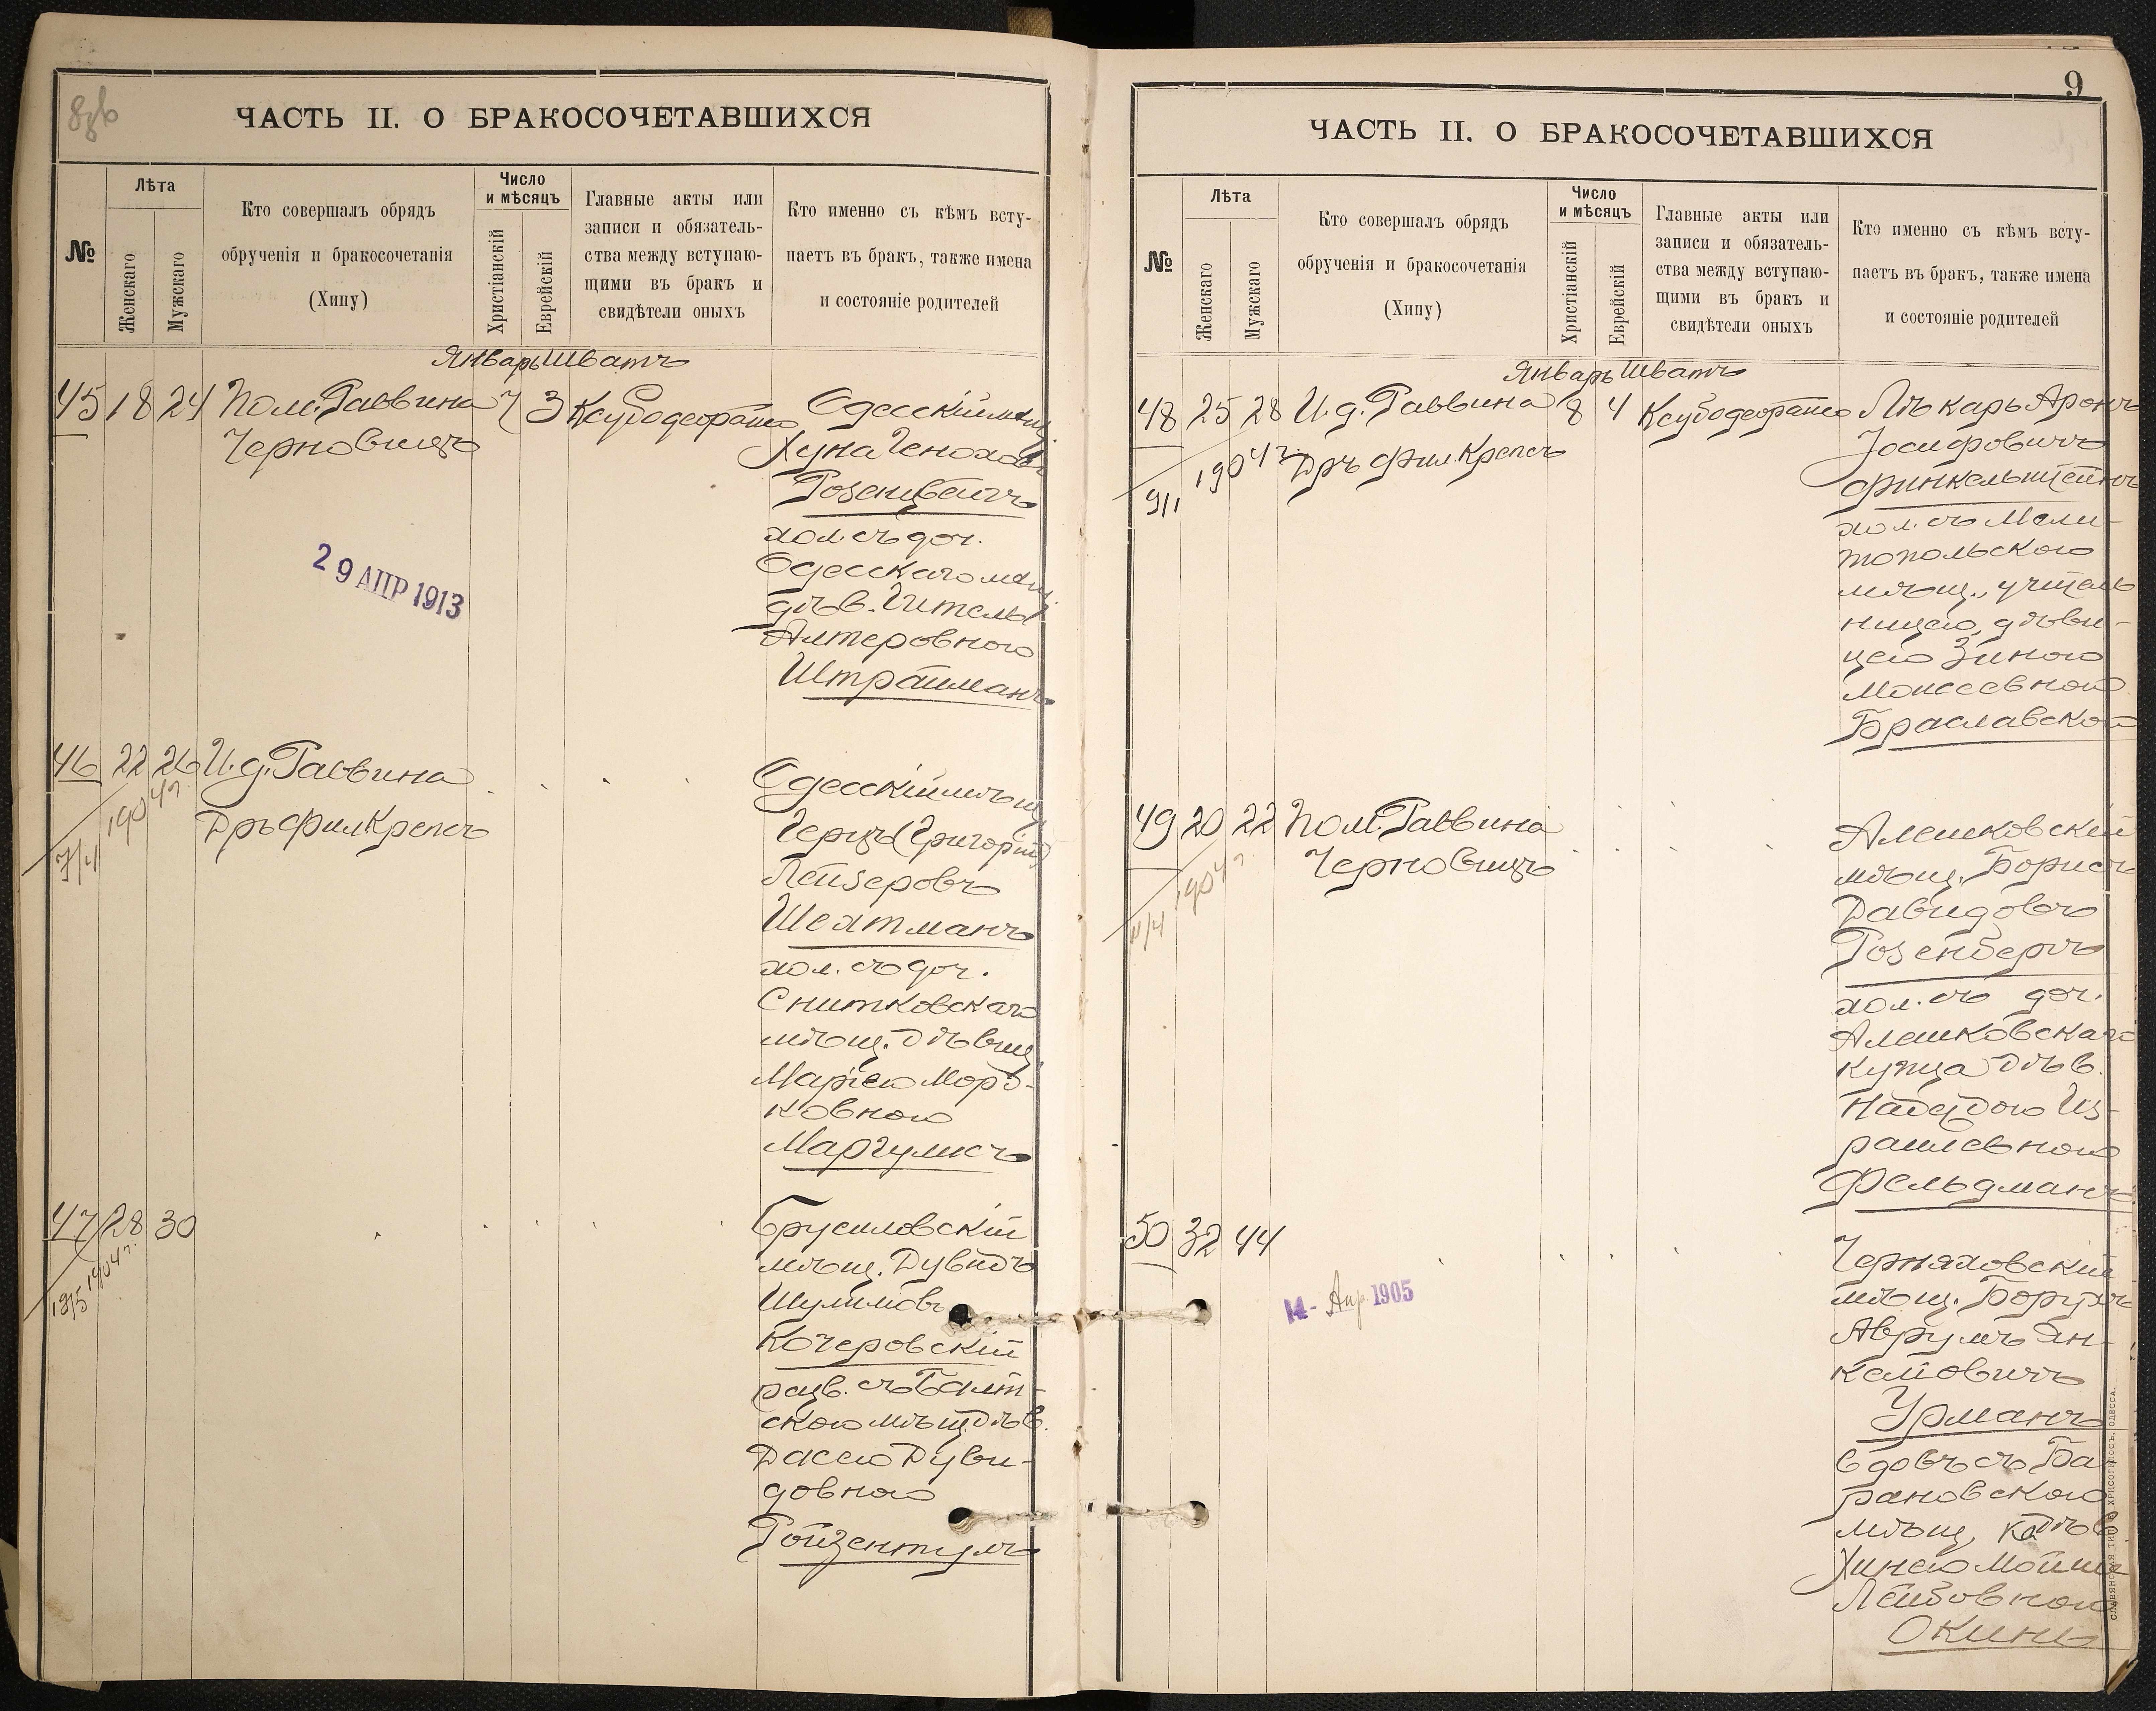 ЧАСТЬ II. О БРАКОСОЧЕТАВШИХСЯ
№
Лѣта
Женскаго
Мужскаго
Кто совершалъ обрядъ
обрученія и бракосочетанія
(Хипу)
Число
и мѣсяцъ
Христіанскій
Еврейскій
Главные акты или
записи и обязатель-
ства между вступаю-
щими въ бракъ и
свидѣтели оныхъ
Кто именно съ кѣмъ всту-
паетъ въ бракъ, также имена
и состояніе родителей
Январь Шватъ
45 18 24 Пом. Раввина 7 3
Черновицъ
Одесскій мѣщ.
Хуна Генохов
Розенцвейгъ
хол. съ доч.
Одесскаго мѣщ.
дѣв. Гитель
Алтеровною
Штрайманъ
29 АПР 1913
46 22 26 И. д. Раввина
Дръ Фил. Крепсъ
7/4 1904 г.
Одесскій мѣщ.
Герцъ (Григорій)
Лейзеровъ
Шехтманъ
хол. съ доч.
Снитковскаго
мѣщ. дѣвиц.
Маріею Морд-
ковною
Маргулисъ
47 28 30
18/5 1904 г.
Брусиловскій
мѣщ. Дувидъ
Шулимовъ
Кочеровскій
разв. съ Балт-
скою мѣщ. дѣв.
Дассею Дуви-
довною
Ройзентулъ
9
ЧАСТЬ II. О БРАКОСОЧЕТАВШИХСЯ
№
Лѣта
Женскаго
Мужскаго
Кто совершалъ обрядъ
обрученія и бракосочетанія
(Хипу)
Число
и мѣсяцъ
Христіанскій
Еврейскій
Главные акты или
записи и обязатель-
ства между вступаю-
щими въ бракъ и
свидѣтели оныхъ
Кто именно съ кѣмъ всту-
паетъ въ бракъ, также имена
и состояніе родителей
Январь Шватъ
48 25 28 И. д. Раввина 8 4
Дръ Фил. Крепсъ
1904 г.
Лѣкарь Аронъ
Іосифовичъ
Финкельштейнъ
хол. съ Мели-
топольскою
мѣщ., учитель
ницею, дѣви-
цею Зиною
Моисеевною
Браславской
49 20 22 Пом. Раввина
Черновицъ
1904 г.
Алешковскій
мѣщ. Борисъ
Давидовъ
Розенбергъ
хол. съ доч.
Алешковскаго
купца дѣв.
Надеждою Из-
раилевною
Фельдманъ
50 32 44
14 - Апр 1905
Черняховскій
мѣщ. Борухъ
Аврумъ Ян-
келіовичъ
Урманъ
вдовъ съ Ба
рановскою
мѣщ. дѣв
Хинею Мойше
Лейбовной
Окинь
СЛАВЯНСКАЯ ТИП. ХРИСОГЕЛОСЪ, ОДЕССА.